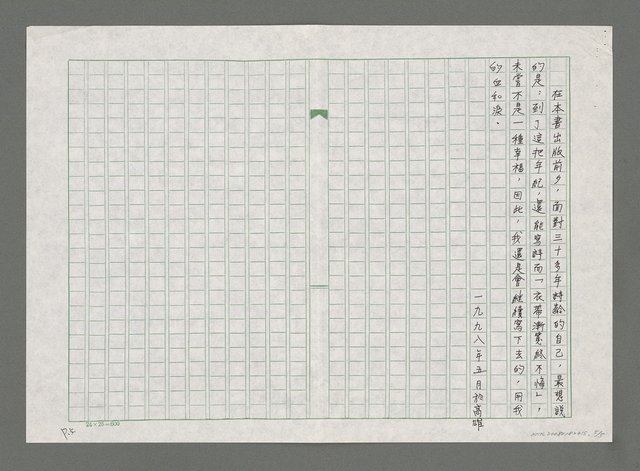 在本書出版前夕，面對三十多年詩齡的自己，最想說
的是：到了這把年紀，還能寫詩而「衣帶漸寬終不悔」，
未嘗不是一種幸福，因此，我還是會繼續寫下去的，用我
的血和淚。
一九九八年五月於高雄
P.5